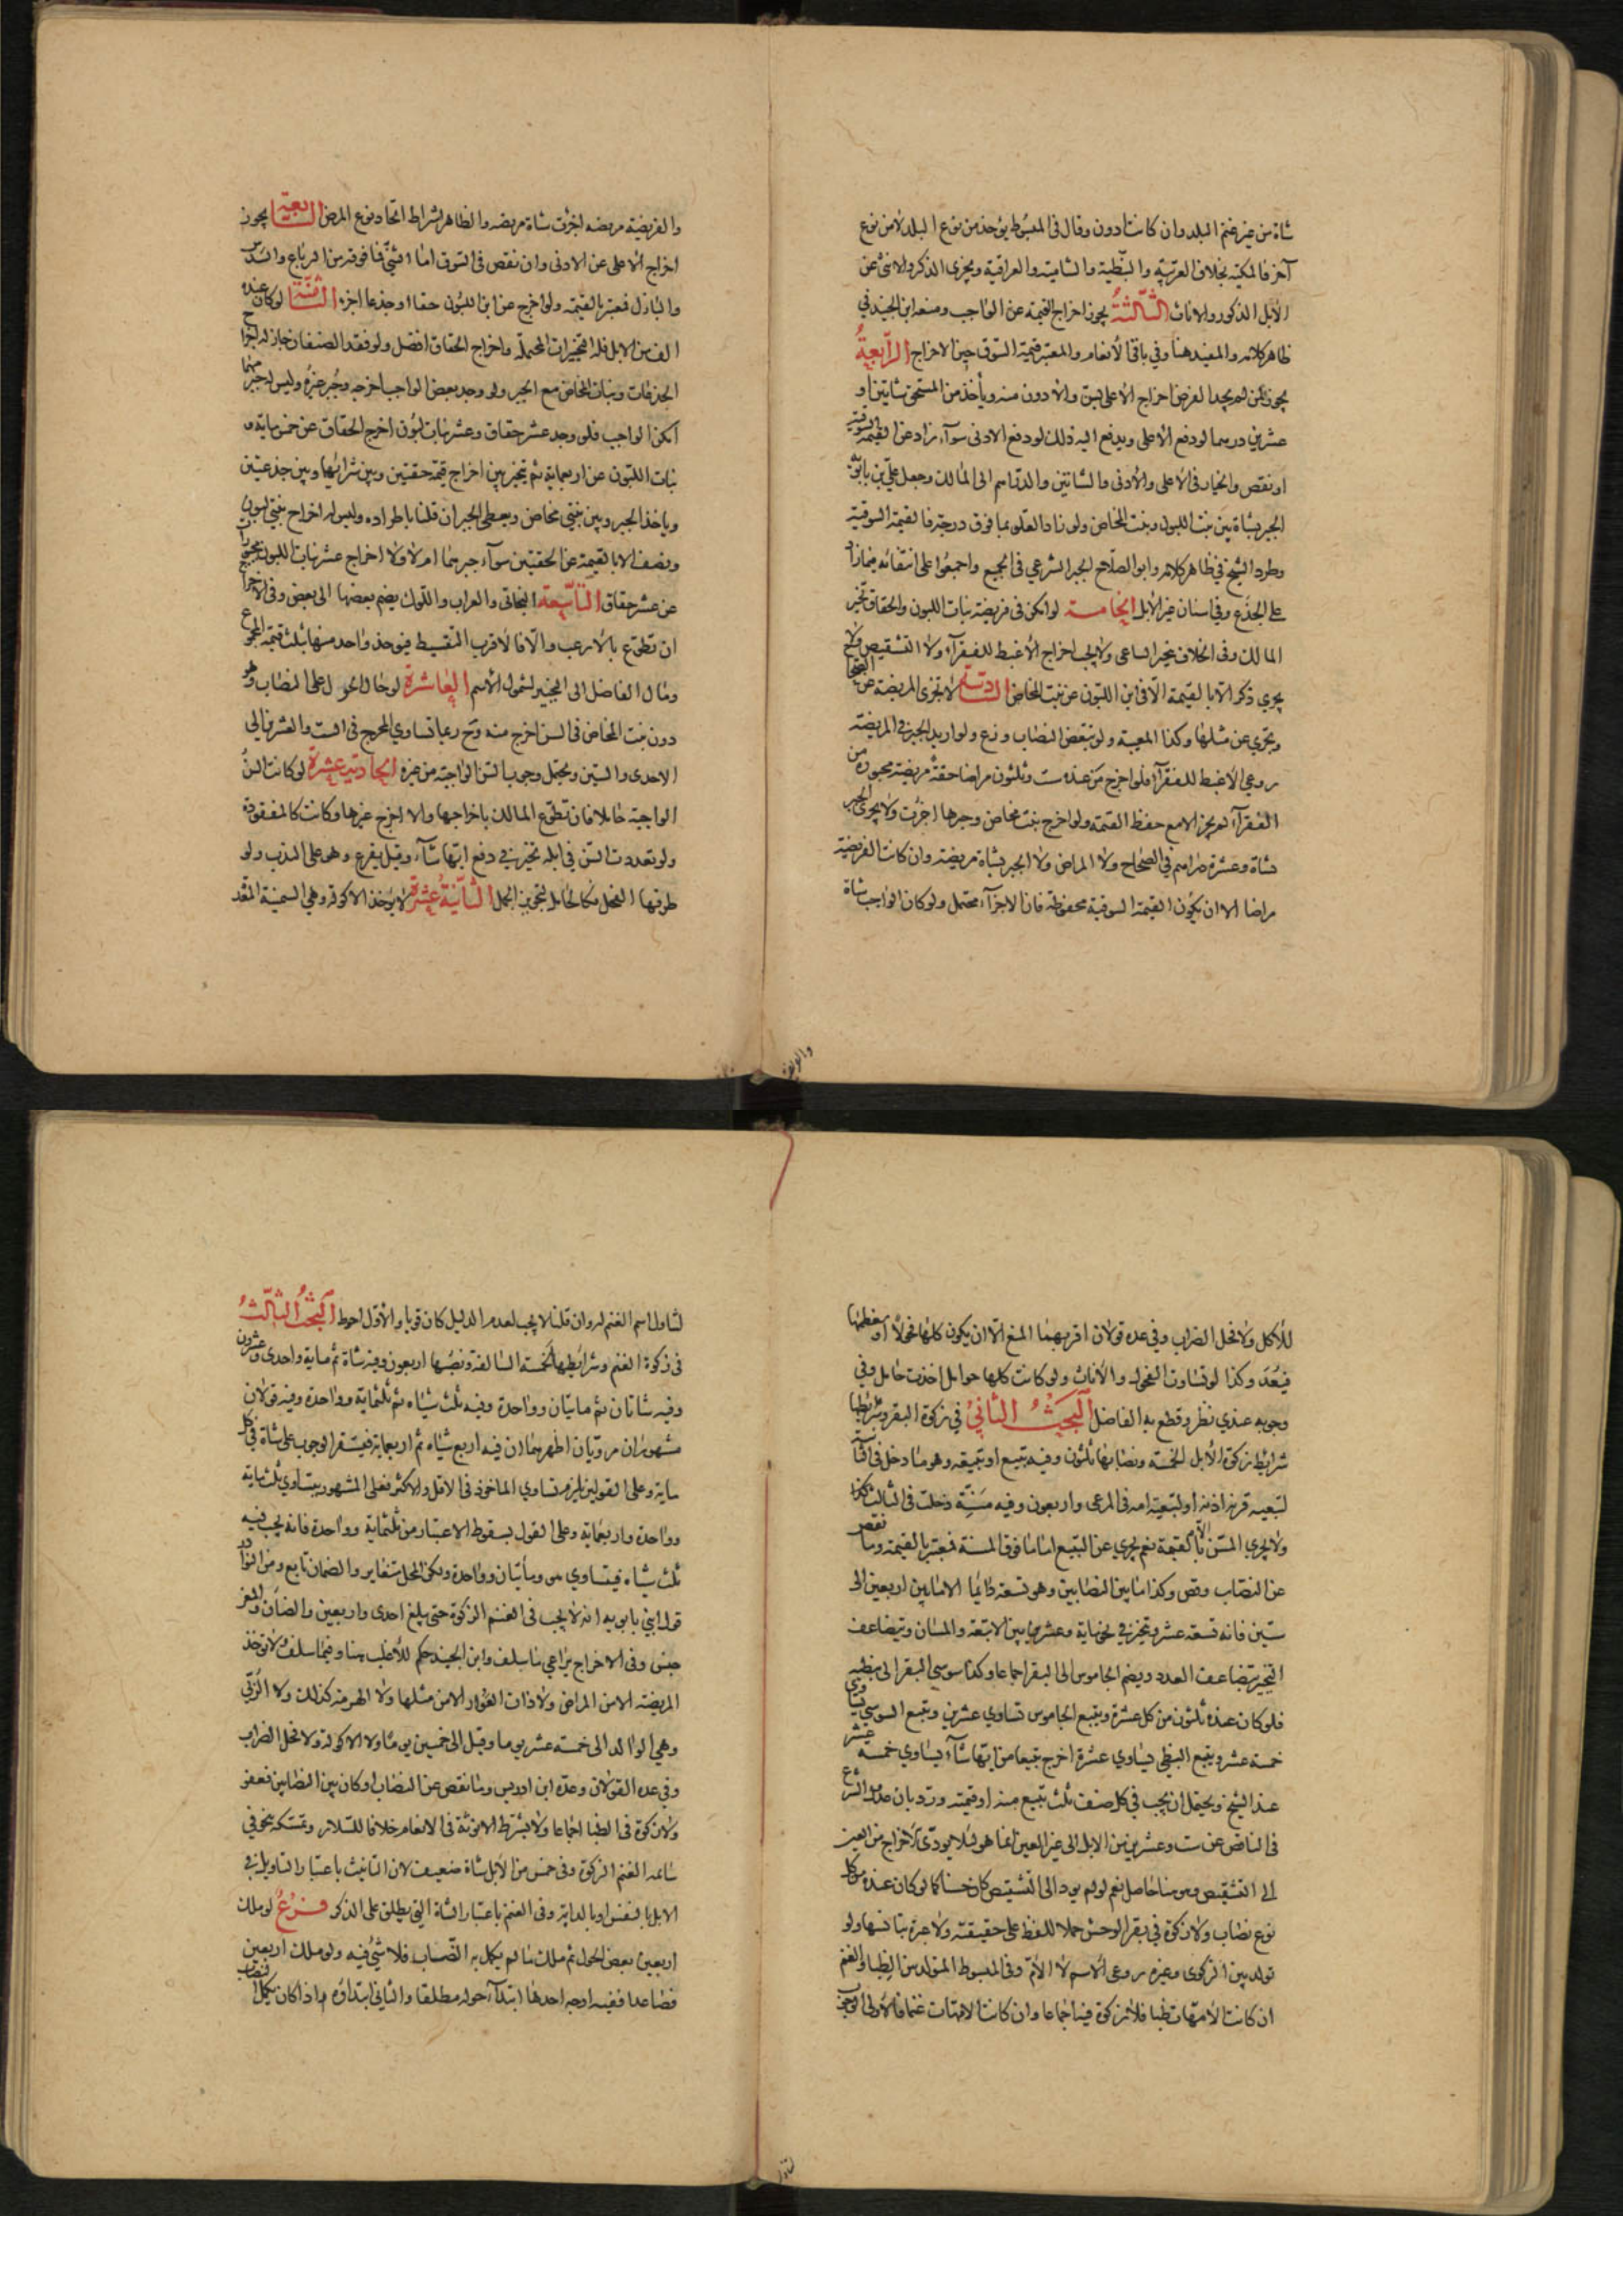 شاة من غير غنم البلد وان كانت ادون وقال في المبسوط يؤخذ من نوع البلد لا من نوع
آخر فالمكية بخلاف العربية والنبطية والشامية والعراقية ويجزى الذكر والانثى عن
الابل الذكور والاناث الثالثة يجوز اخراج القيمة عن الواجب ومنعه ابن الجنيد في
ظاهر كلامه والمفيد هنا وفي باقي الانعام والمعتبر قيمة السوق حين الاخراج الرابعة
يجوز لمن لم يجد الفرض اخراج الاعلى بسن والادون منه ويأخذ من المستحق شاتين او
عشرين درهما لو دفع الاعلى ويدفع اليه ذلك لو دفع الادنى سوآء زاد عن القيمة السوقية
او نقص والخيار في الاعلى والادنى والشاتين والدراهم الى المالك وجعل علي بن بابويه
الجبر بشاة بين بنت اللبون وبنت المخاض ولو زاد العلو بما فوق درجة فالقيمة السوقية
وطرد الشيخ في ظاهر كلامه وابو الصلاح الجبر الشرعي في الجميع واجمعوا على انتفائه فيما زاد
على الجذع وفي اسنان غير الابل الخامسة لو امكن في فريضة بنات اللبون والحقاق تخير
المالك وفي الخلاف يتخير الساعي ولا يجب اخراج الاغبط للفقرآء ولا التشقيص ولا
يجزي ذكر الا بالقيمة الا في ابن اللبون عن بنت المخاض السادسة لا تجزى المريضة عن الصحاح
وتجزي عن مثلها وكذا المعيبة ولو تبعض النصاب وزع ولو اريد الجبر في المريضة
روعي الاغبط للفقرآء فلو اخرج من عنده ست وثلثون مراضا حقة مريضة مجبورة من
الفقرآء لم يجز الا مع حفظ القيمة ولو اخرج بنت مخاض وجبرها اجزئت ولا يجزى الجبر
بشاة وعشرة دراهم في الصحاح ولا المراض ولا الجبر بشاة مريضة وان كانت الفريضة
مراضا الا ان يكون القيمة السوقية محفوظة فان الاجزآء محتمل ولو كان الواجب شاة
والفريضة
والفريضة مريضه اجزئت شاة مريضه والظاهر اشتراط اتحاد نوع المرض السابعة يجوز
اخراج الاعلى عن الادنى وان نقص في السوق اما الثني فما فوقه من الرباع والسدس
والبازل فيعتبر بالقيمة ولو اخرج عن ابن اللبون حقا او جذعا اجزء الثامنة لو كان عنده
الف من الابل فله التخييرات المحتملة واخراج الحقاق افضل ولو فقد الصنفان جاز له اخراج
الجذعات وبنات المخاض مع الجبر ولو وجد بعض الواجب اخرجه وجبر غيره وليس له جبر مهما
امكن الواجب فلو وجد عشر حقاق وعشر بنات لبون اخرج الحقاق عن خمس مايه و
بنات اللبون عن اربعمايه ثم يتخير بين اخراج قيمة حقتين وبين شرائها وبين جذعتين
وياخذ الجبر وبين بنتي مخاض ويعطي الجبر ان قلنا باطراده وليس له اخراج بنتي لبون
ونصف الا بالقيمة عن الحقتين سوآء جبرهما ام لا ولا اخراج عشر بنات اللبون
عن عشر حقاق التاسعة البخاتي والعراب واللوك يضم بعضها الى بعض وفي الاخراج
ان تطوع بالارغب والا فالاقرب التقسيط فيؤخذ واحد منها بثلث قيمة المجموع
ومال الفاضل الى التخيير لشمول الاسم العاشرة لو حال الحول على النصاب وهو
دون بنت المخاض في السن اخرج منه وح ربما تساوي المخرج في الست والعشرين الى
الاحدى والستين ويحتمل وجوب السن الواجبة من غيره الحادية عشرة لو كانت السن
الواجبة حاملا فان تطوع المالك باخراجها والا اخرج غيرها وكانت كالمفقودة
ولو تعددت السن في ابله تخير في دفع ايتها شآء وقيل يقرع وهو على الندب ولو
طرقها الفحل فكالحامل لتجويز الحمل الثانية عشرة لا يؤخذ الاكولة وهي السمينة المعدة
للاكل ولا فحل الضراب وفي عده قولان اقربهما المنع الا ان يكون كلها فحولا او معظمها
فيعد وكذا لو تساوت الفحول والاناث ولو كانت كلها حوامل اخذت حامل وفي
وجوبه عندي نظر وقطع به الفاضل البحث الثاني في زكوة البقر وشرائطها
شرائط زكوة الابل الخمسة ونصابها ثلثون وفيه تبيع او تبيعة وهو ما دخل في الثانية
لتبعية قرنه اذنه او لتبعيته امه في المرعى واربعون وفيه مسنة دخلت في الثالثة
ولا يجزي المسن الا بالقيمة نعم يجزي عن التبيع اما ما فوق المسنة فيعتبر بالقيمة وما نقص
عن النصاب وقص وكذا ما بين النصابين وهو تسعة دائما الا ما بين اربعين الى
ستين فانه تسعة عشر ويتخير في نحو ماية وعشرين بين الاتبعة والمسان ويتضاعف
التخيير بتضاعف العدد ويضم الجاموس الى البقر اجماعا وكذا سوسي البقر الى نبطيه
فلو كان عنده ثلثون من كل عشرة وتبيع الجاموس تساوي عشرين وتبيع السوسي يساوي
خمسة عشر وتبيع النبطي يساوي عشرة اخرج تبيعا من ايتها شآء يساوي خمسة عشر
عند الشيخ ويحتمل ان يجب في كل صنف ثلث تبيع منه او قيمته ورد بان عدول الشرع
في الناقص عن ست وعشرين من الابل الى غير العين انما هو لئلا يودى الاخراج من العين
الى التشقيص وهو هنا حاصل نعم لو لم يود الى التشقيص كان حسنا كما لو كان عنده من كل
نوع نصاب ولا زكوة في بقر الوحش حملا للفظ على حقيقته ولا عبرة بتانسها ولو
تولد بين الزكوى وغيره روعى الاسم لا الام وفي المبسوط المتولد من الظبا والغنم
ان كانت الامهات ظبا فلا زكوة فيه اجماعا وان كانت الامهات غنما فالاولى الوجوب
لتناول
لتناول اسم الغنم له وان قلنا لا يجب لعدم الدليل كان قويا والاول احوط البحث الثالث
في زكوة الغنم وشرائطها الخمسة السالفة ونصبها اربعون وفيه شاة ثم ماية واحدى وعشرون
وفيه شاتان ثم مايتان وواحدة وفيه ثلث شياه ثم ثلثماية وواحدة وفيه قولان
مشهوران مرويان اظهرهما ان فيه اربع شياه ثم اربعماية فيستقر الوجوب على شاة في كل
ماية وعلى القولين يلزم تساوي الماخوذ في الاقل والاكثر فعلى المشهور يتساوي ثلثماية
وواحدة واربعماية وعلى القول بسقوط الاعتبار من ثلثماية وواحدة فانه يجب فيه
ثلث شياه فيتساوي هو ومأيتان وواحدة ولكن المحل متغاير والضمان تابع ومن النوادر
قول ابني بابويه انه لا يجب في الغنم الزكوة حتى يبلغ احدى واربعين والضأن والمعز
جنس وفي الاخراج يراعي ما سلف وابن الجنيد حكم للاغلب هنا وفيما سلف ولا توخذ
المريضة الا من المراض ولا ذات العوار الا من مثلها ولا الهرمة كذلك ولا الربى
وهي الوالد الى خمسة عشر يوما وقيل الى خمسين يوما ولا الاكولة ولا فحل الضراب
وفي عده القولان وعده ابن ادريس وما نقص عن النصاب او كان بين النصابين فعفو
ولا زكوة في الظبا اجماعا ولا يشترط الانوثة في الانعام خلافا للسلار وتمسكه بنحو في
سائمه الغنم الزكوة وفي خمس من الابل شاة ضعيف لان التانيث باعتبار التاويل في
الابل بالنفس او بالدابة وفي الغنم باعتبار الشاة التي يطلق على الذكر فرع لو ملك
اربعين بعض الحول ثم ملك ما لم يكمل به النصاب فلا شئ فيه ولو ملك اربعين
فصاعدا ففيه اوجه احدها ابتدآء حوله مطلقا والثاني ابتداؤه اذا كان يكمل النصاب